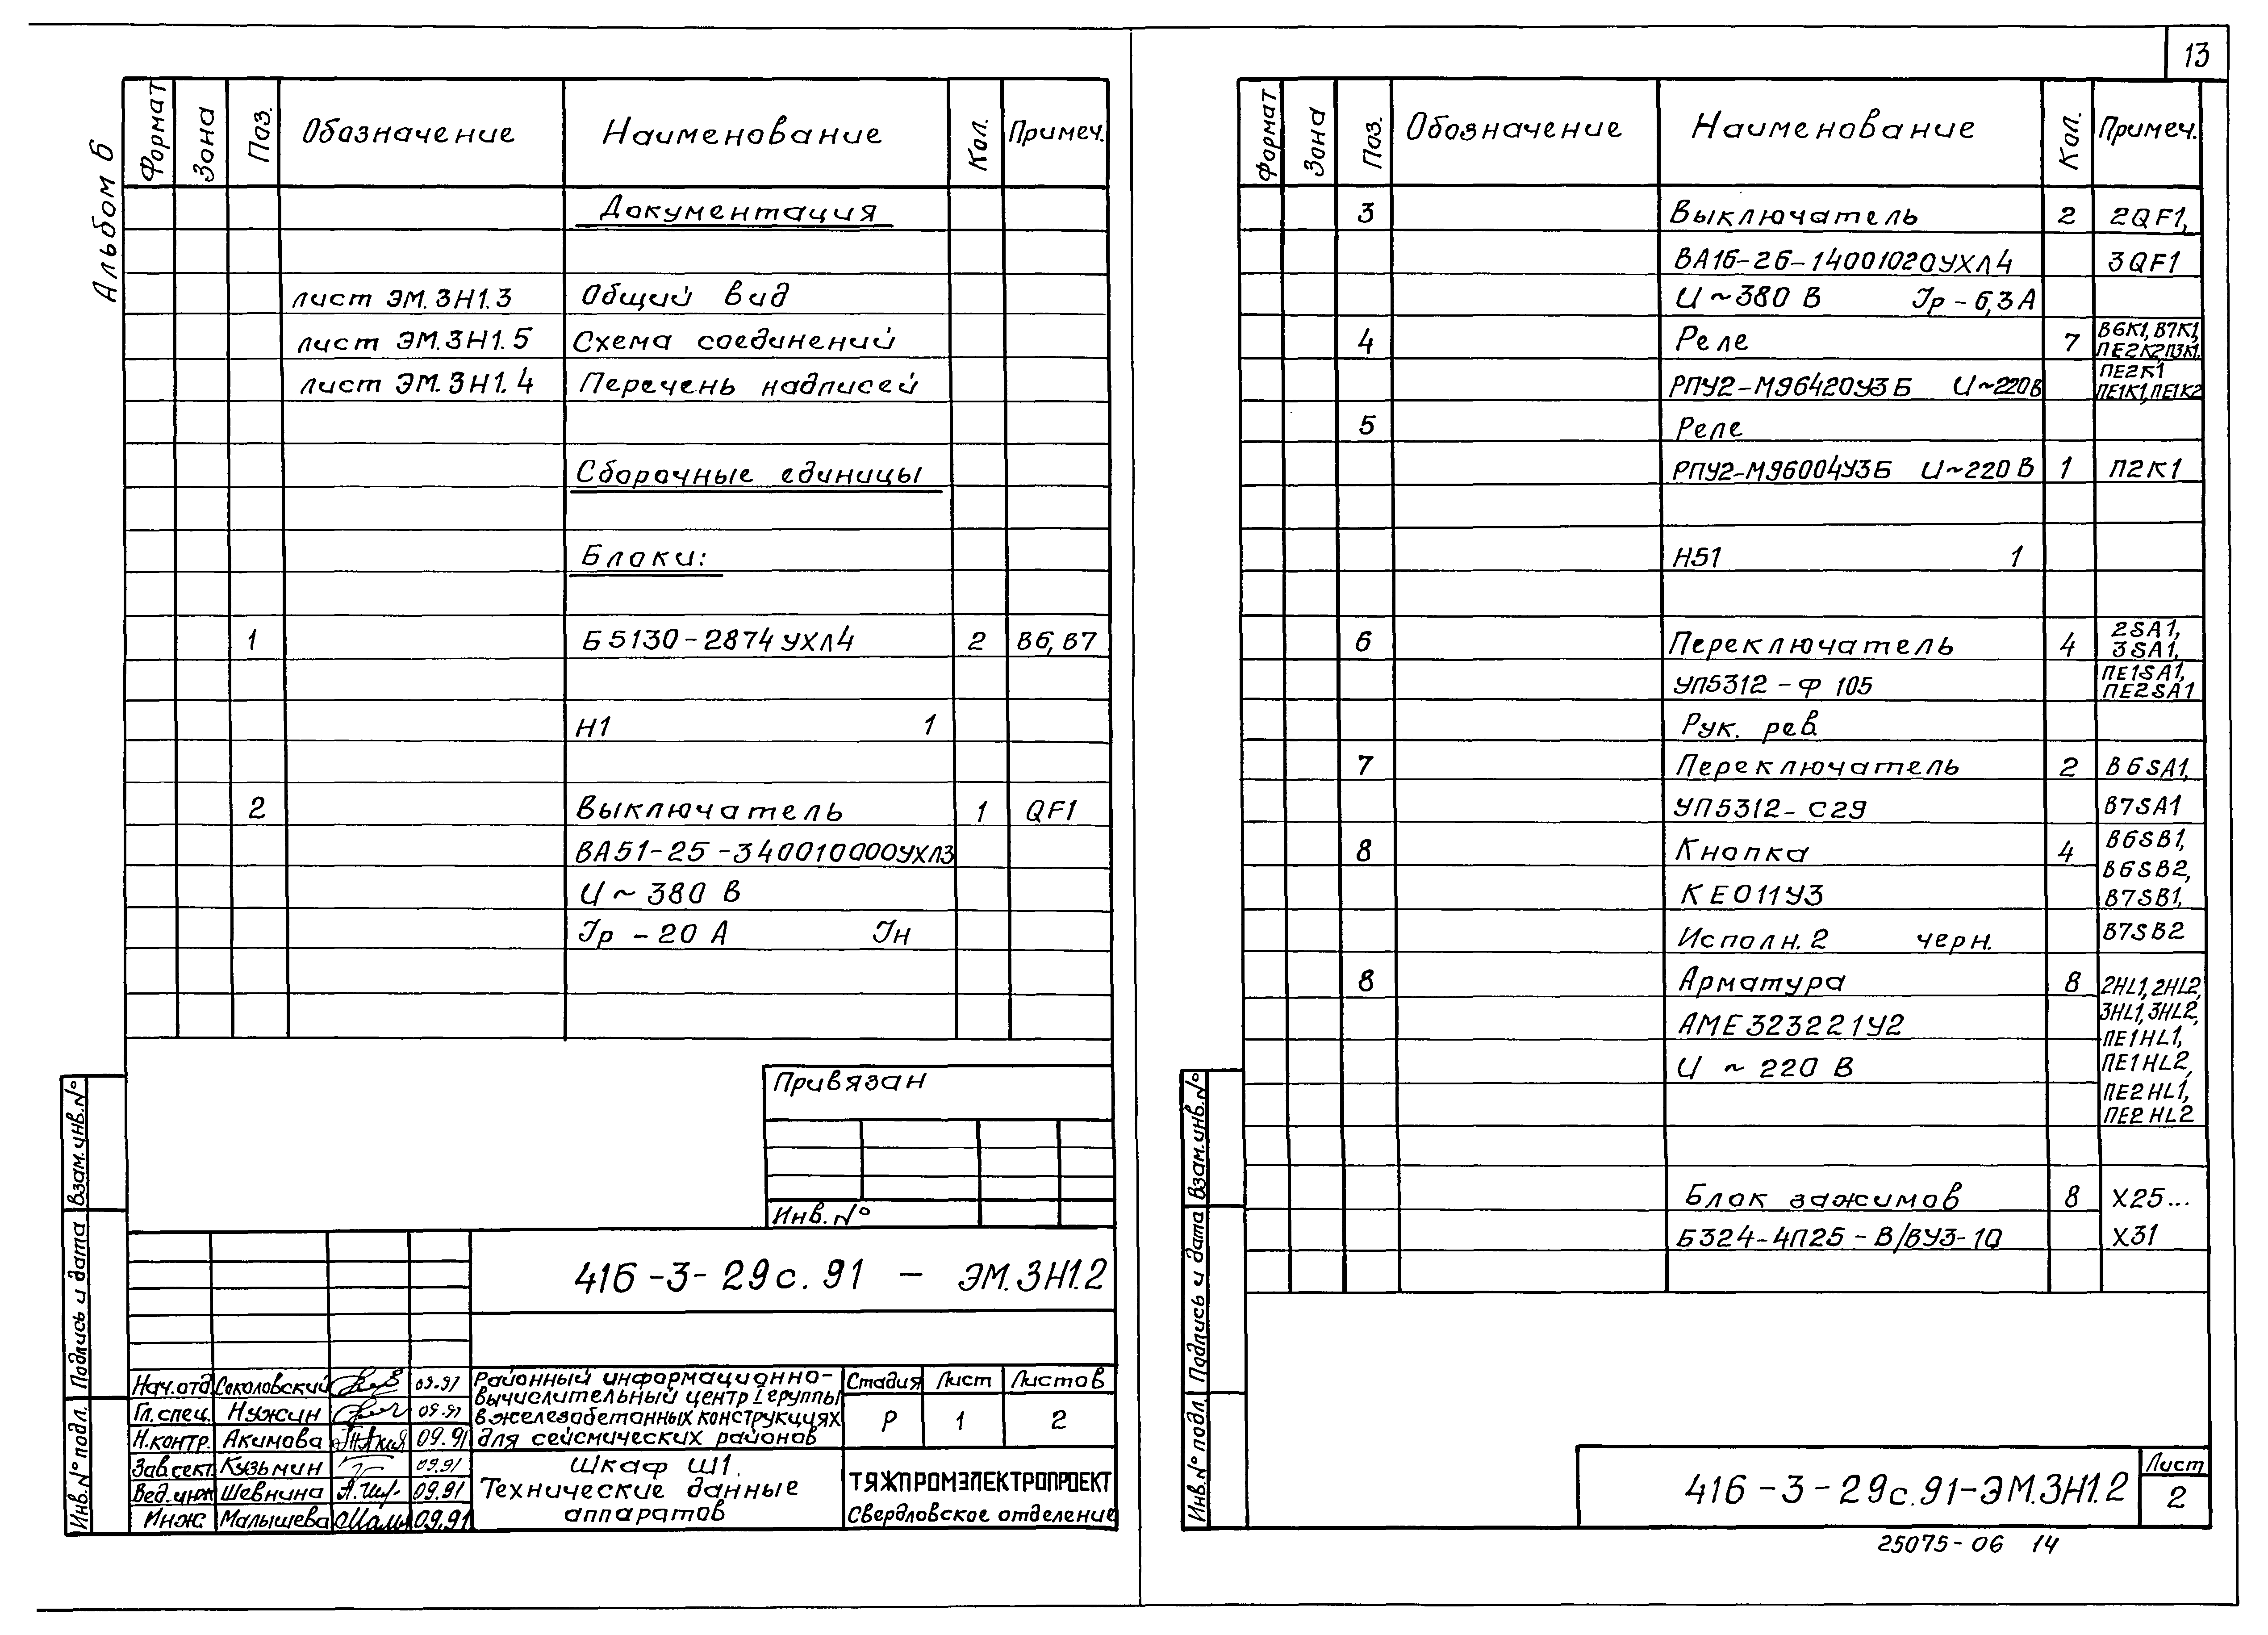 13
Альбом 6
Формат Зона Поз. Обозначение Наименование Кол. Примеч.
Документация
лист ЭМ.ЗН1.3 Общий вид
лист ЭМ.ЗН1.5 Схема соединений
лист ЭМ.ЗН1.4 Перечень надписей
Сборочные единицы
Блоки:
1 Б5130-2874УХЛ4 2 В6, В7
Н1 1
2 Выключатель 1 QF1
ВА51-25-340010000УХЛ3
U ~ 380 В
Iр - 20 А Iн
Привязан
Инв. №
416-3-29с.91 - ЭМ.ЗН1.2
Нач.отд. Соколовский 09.91
Гл. спец. Нужин 09.91
Н.контр. Акимова 09.91
Зав.сект. Кузьмин 09.91
Вед.инж Шевнина 09.91
Инж. Малышева 09.91
Районный информационно-
вычислительный центр I группы
в железобетонных конструкциях
для сейсмических районов
Стадия Лист Листов
Р 1 2
Шкаф Ш1.
Технические данные
аппаратов
ТЯЖПРОМЭЛЕКТРОПРОЕКТ
Свердловское отделение
Инв.№ подл. Подпись и дата Взам.инв.№
Формат Зона Поз. Обозначение Наименование Кол. Примеч.
3 Выключатель 2 2QF1,
ВА16-26-14001020УХЛ4 3QF1
U ~ 380 В Iр - 6,3 А
4 Реле 7 В6К1, В7К1,
ПЕ2К2, П3К1,
РПУ2-М96420У3Б U~220В ПЕ2К1
ПЕ1К1, ПЕ1К2
5 Реле
РПУ2-М96004У3Б U~220 В 1 П2К1
Н51 1
6 Переключатель 4 2SA1,
3SA1,
УП5312-Ф 105 ПЕ1SA1,
ПЕ2SA1
Рук. рев
7 Переключатель 2 В6SA1,
УП5312-С29 В7SA1
8 Кнопка 4 В6SB1,
В6SB2,
КЕ011У3 В7SB1,
Исполн. 2 черн. В7SB2
8 Арматура 8 2HL1, 2HL2,
3HL1, 3HL2,
АМЕ323221У2 ПЕ1HL1,
U ~ 220 В ПЕ1HL2,
ПЕ2HL1,
ПЕ2HL2
Блок зажимов 8 Х25...
Б324-4П25-В/ВУ3-10 Х31
Инв.№ подл. Подпись и дата Взам.инв.№
416-3-29с.91-ЭМ.ЗН1.2
Лист
2
25075-06 14